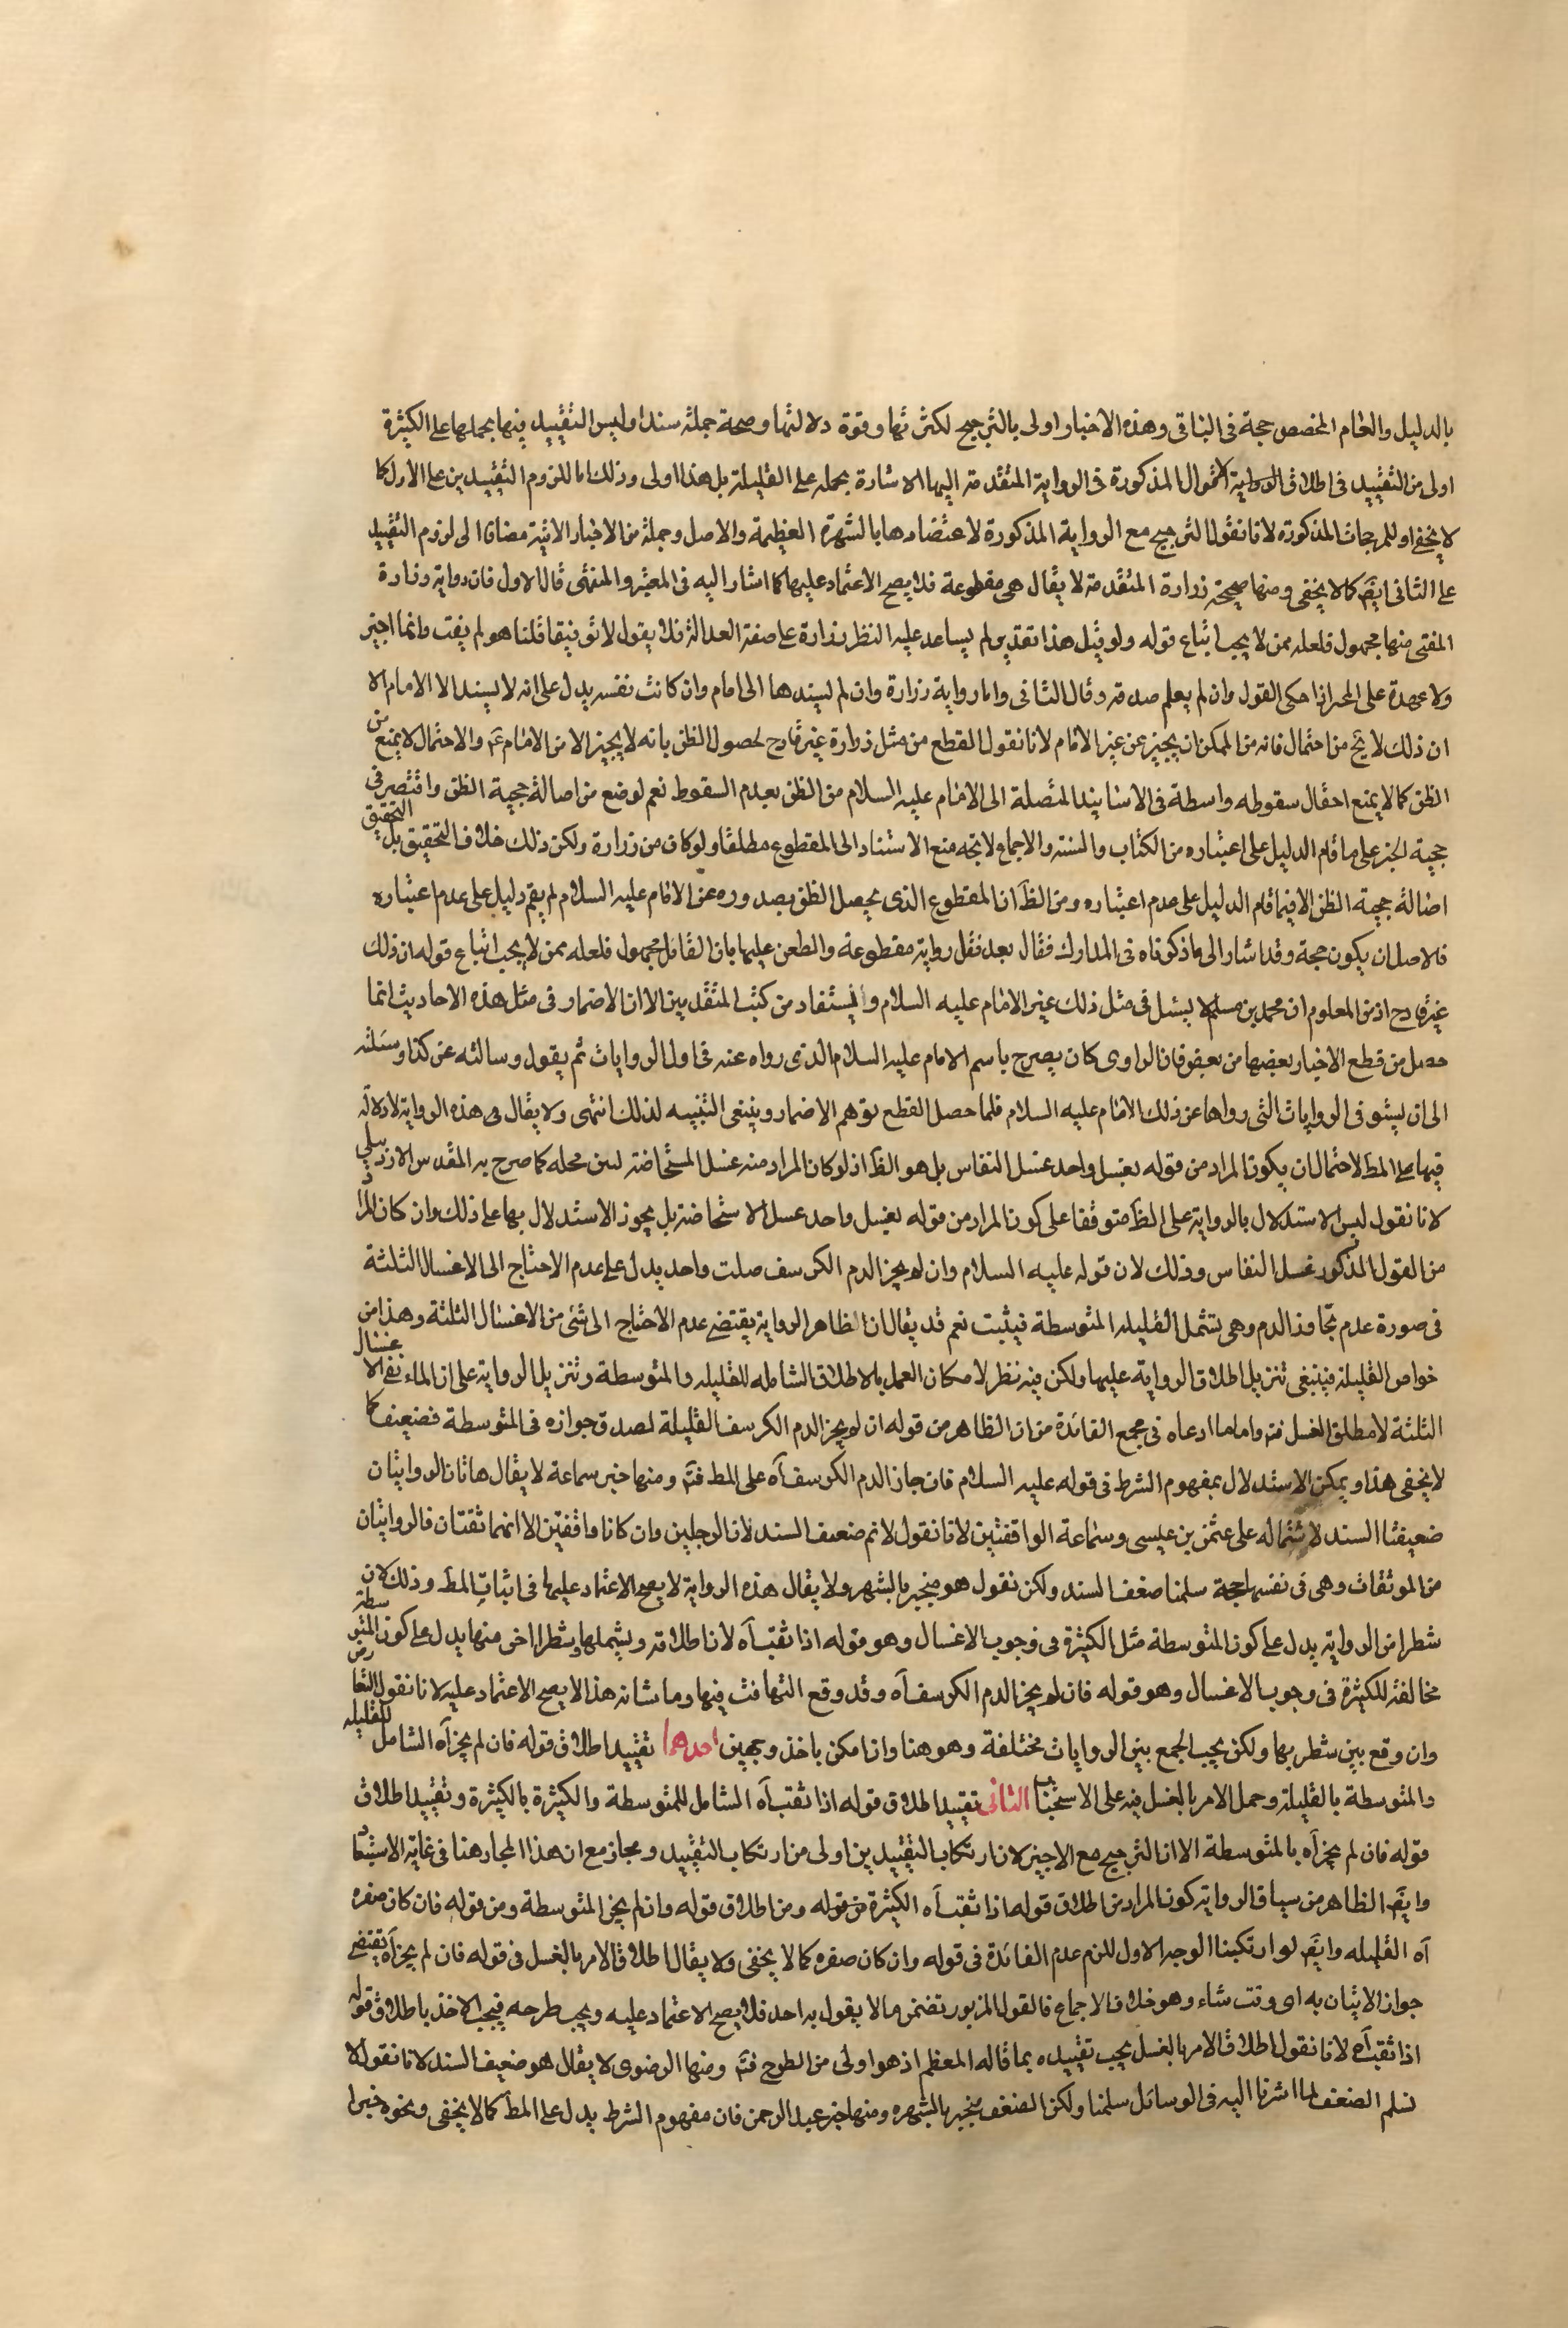 بالدليل والعام المخصص حجة فى الباقى وهذه الاخبار اولى بالترجيح لكثرتها وقوة دلالتها وصحة جملة سندا وليس التقييد فيها بحملها على الكثيرة
اولى من التقييد فى اطلاق الرواية لاحوال المذكورة فى الرواية المتقدمة اليها الاشارة بحمله على القليلة بل هذا اولى وذلك اما للزوم التقييدين على الاول كما
لا يخفى او للمرجحات المذكورة لانا نقول الترجيح مع الرواية المذكورة لاعتضادها بالشهرة العظيمة والاصل وجملة من الاخبار الاتية مضافا الى لزوم التقييد
على الثانى ايضا كما لا يخفى ومنها صحيحة زرارة المتقدمة لا يقال هى مقطوعة فلا يصح الاعتماد عليها كما اشار اليه فى المعتبر والمنتهى قال الاول فان رواية زرارة
المفتى منها مجهول فلعله ممن لا يجب اتباع قوله ولو قيل هذا تقدير لم يساعد عليه النظر زرارة على صفة العدالة فلا يقول لا توقيفا قلنا هو لم يفت وانما اخبر
ولا عهدة على المخبر اذا حكى القول وان لم يعلم صدقه وقال الثانى واما رواية زرارة وان لم يسندها الى امام وان كانت نفسه يدل على انه لا يسند الا الى الامام الا
ان ذلك لا يخ من احتمال فانه من الممكن ان يخبر عن غير الامام لانا نقول القطع من مثل زرارة غير قادح لحصول الظن بانه لا يخبر الا من الامام ع والاحتمال لا يمنع من
الظن كما لا يمنع احتمال سقوطه واسطة فى الاسانيد المتصلة الى الامام عليه السلام من الظن بعدم السقوط نعم لو منع من اصالة حجية الظن واقتصر فى
حجية الخبر على ما قام الدليل على اعتباره من الكتاب والسنة والاجماع لاتجه منع الاستناد الى المقطوع مطلقا ولو كان من زرارة ولكن ذلك خلاف التحقيق بل التحقيق
اصالة حجية الظن الا فيما قام الدليل على عدم اعتباره ومن الظ ان المقطوع الذى يحصل الظن بصدوره عن الامام عليه السلام لم يقم دليل على عدم اعتباره
فالاصل ان يكون حجة وقد اشار الى ما ذكرناه فى المدارك فقال بعد نقل رواية مقطوعة والطعن عليها بان القائل مجهول فلعله ممن لا يجب اتباع قوله ان ذلك
غير قادح اذ من المعلوم ان محمد بن مسلم لا يسئل فى مثل ذلك غير الامام عليه السلام والمستفاد من كتب المتقدمين الا ان الاضمار فى مثل هذه الاحاديث انما
حصل من قطع الاخبار بعضها من بعض فان الراوى كان يصرح باسم الامام عليه السلام الذى رواه عنه فى اول الروايات ثم يقول وسالته عن كذا وسئلته
الى ان يستوفى الروايات التى رواها عن ذلك الامام عليه السلام فلما حصل القطع توهم الاضمار وينبغى التنبيه لذلك انتهى ولا يقال فى هذه الرواية لا دلالة
فيها على المط لاحتمال ان يكون المراد من قوله بغسل واحد غسل النفاس بل هو الظ اذ لو كان المراد منه غسل المستحاضة لبين محله كما صرح به المقدس الاردبيلى
لانا نقول ليس الاستدلال بالرواية على الظ متوقفا على كون المراد من قوله بغسل واحد غسل الاستحاضة بل يجوز الاستدلال بها على ذلك وان كان المراد
من القول المذكور غسل النفاس وذلك لان قوله عليه السلام وان لم يجز الدم الكرسف صلت واحد يدل على عدم الاحتياج الى الاغسال الثلثة
فى صورة عدم تجاوز الدم وهى تشمل القليله المتوسطة فيثبت نعم قد يقال ان الظاهر الرواية يقتضى عدم الاحتياج الى شئ من الاغسال الثلثة وهذا من
خواص القليلة فينبغى تنزيل اطلاق الرواية عليها ولكن فيه نظر لامكان العمل بالاطلاق الشامله للقليله والمتوسطة وتنزيل الرواية على ان الماء نفى الاغسال
الثلثة لا مطلق الغسل فتم واما ما ادعاه فى مجمع الفائدة من ان الظاهر من قوله ان لم يجز الدم الكرسف القليلة لصدق جوازه فى المتوسطة فضعيف كما
لا يخفى هذا ويمكن الاستدلال بمفهوم الشرط فى قوله عليه السلام فان جاز الدم الكرسف آه على المط فتم ومنها خبر سماعة لا يقال هاتان الروايتان
ضعيفتا السند لاشتماله على عثمن بن عيسى وسماعة الواقفيين لانا نقول لا نم ضعف السند لان الرجلين وان كانا واقفيين الا انهما ثقتان فالروايتان
من الموثقات وهى فى نفسها حجة سلمنا ضعف السند ولكن نقول هو منجبر بالشهر ولا يقال هذه الرواية لا يصح الاعتماد عليها فى اثبات المط وذلك لان
شطرا من الرواية يدل على كون المتوسطة مثل الكثيرة فى وجوب الاغسال وهو قوله اذا ثقب آه لان اطلاقه ويشملها وشطرا اخر منها يدل على كون المتوسطة
مخالفة للكثيرة فى وجوب الاغسال وهو قوله فان لم يجز الدم الكرسف آه وقد وقع التهافت فيها وما شانه هذا لا يصح الاعتماد عليه لانا نقول التعارض
وان وقع بين شطريها ولكن يجب الجمع بين الروايات مختلفة وهو هنا وان امكن باخذ وجهين احدهما تقييد اطلاق قوله فان لم يجز آه الشامل للقليله
والمتوسطة بالقليلة وحمل الامر بالغسل فيه على الاستحباب الثانى تقييد اطلاق قوله اذا ثقب آه الشامل للمتوسطة والكثيرة بالكثيرة وتقييد اطلاق
قوله فان لم يجز آه بالمتوسطة الا ان الترجيح مع الاخير لان ارتكاب التقييدين اولى من ارتكاب التقييد ومجاز مع ان هذا المجاز هنا فى غاية الاستبعاد
وايضا الظاهر من سياق الرواية كون المراد من اطلاق قوله اذا ثقب آه الكثيرة من قوله ومن اطلاق قوله وان لم يجز المتوسطة ومن قوله فان كان صفره
آه القليله وايضا لو ارتكبنا الوجه الاول للزم عدم الفائدة فى قوله وان كان صفره كما لا يخفى ولا يقال اطلاق الامر بالغسل فى قوله فان لم يجز آه يقتضى
جواز الاتيان به اى وقت شاء وهو خلاف الاجماع فالقول المزبور تضمن ما لا يقول به احد فلا يصح الاعتماد عليه ويجب طرحه فيجب الاخذ باطلاق قوله
اذا ثقب آه لانا نقول اطلاق الامر بالغسل يجب تقييده بما قاله المعظم اذ هو اولى من الطرح فتم ومنها الرضوى لا يقال هو ضعيف السند لانا نقول لا
نسلم الضعف لما اشرنا اليه فى الوسائل سلمنا ولكن الضعف منجبر بالشهره ومنها خبر عبد الرحمن فان مفهوم الشرط يدل على المط كما لا يخفى ونحوه خبرا